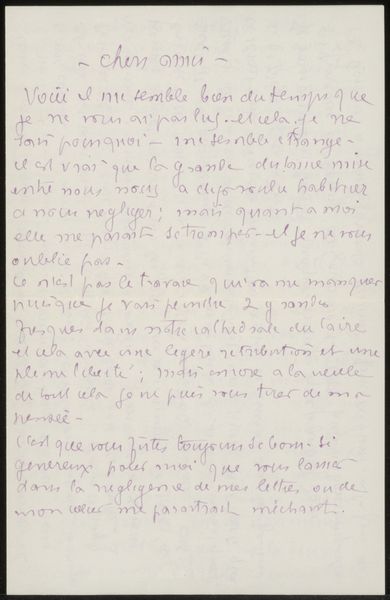 - chers amis -
Voici il me semble bien du temps que
je ne vous ai pas lus - et cela - je ne
sais pourquoi - me semble étrange -
il est vrai que la grande distance mise
entre nous nous a déjà voulu habituer
a nous negliger ; mais quant a moi
elle me parait se tromper - et je ne vous
oublie pas -
Ce n'est pas le travail qui va me manquer
puisque je vais peindre 2 grandes
fresques dans notre cathédrale du Caire
et cela avec une légère retribution et une
pleine liberté ; mais encore a la veille
de tout cela je ne puis vous tirer de ma
pensée -
C'est que vous fûtes toujours si bons - si
genereux pour moi que vous laisser
dans la negligence de mes lettres ou de
mon cœur me paraitrait méchant.